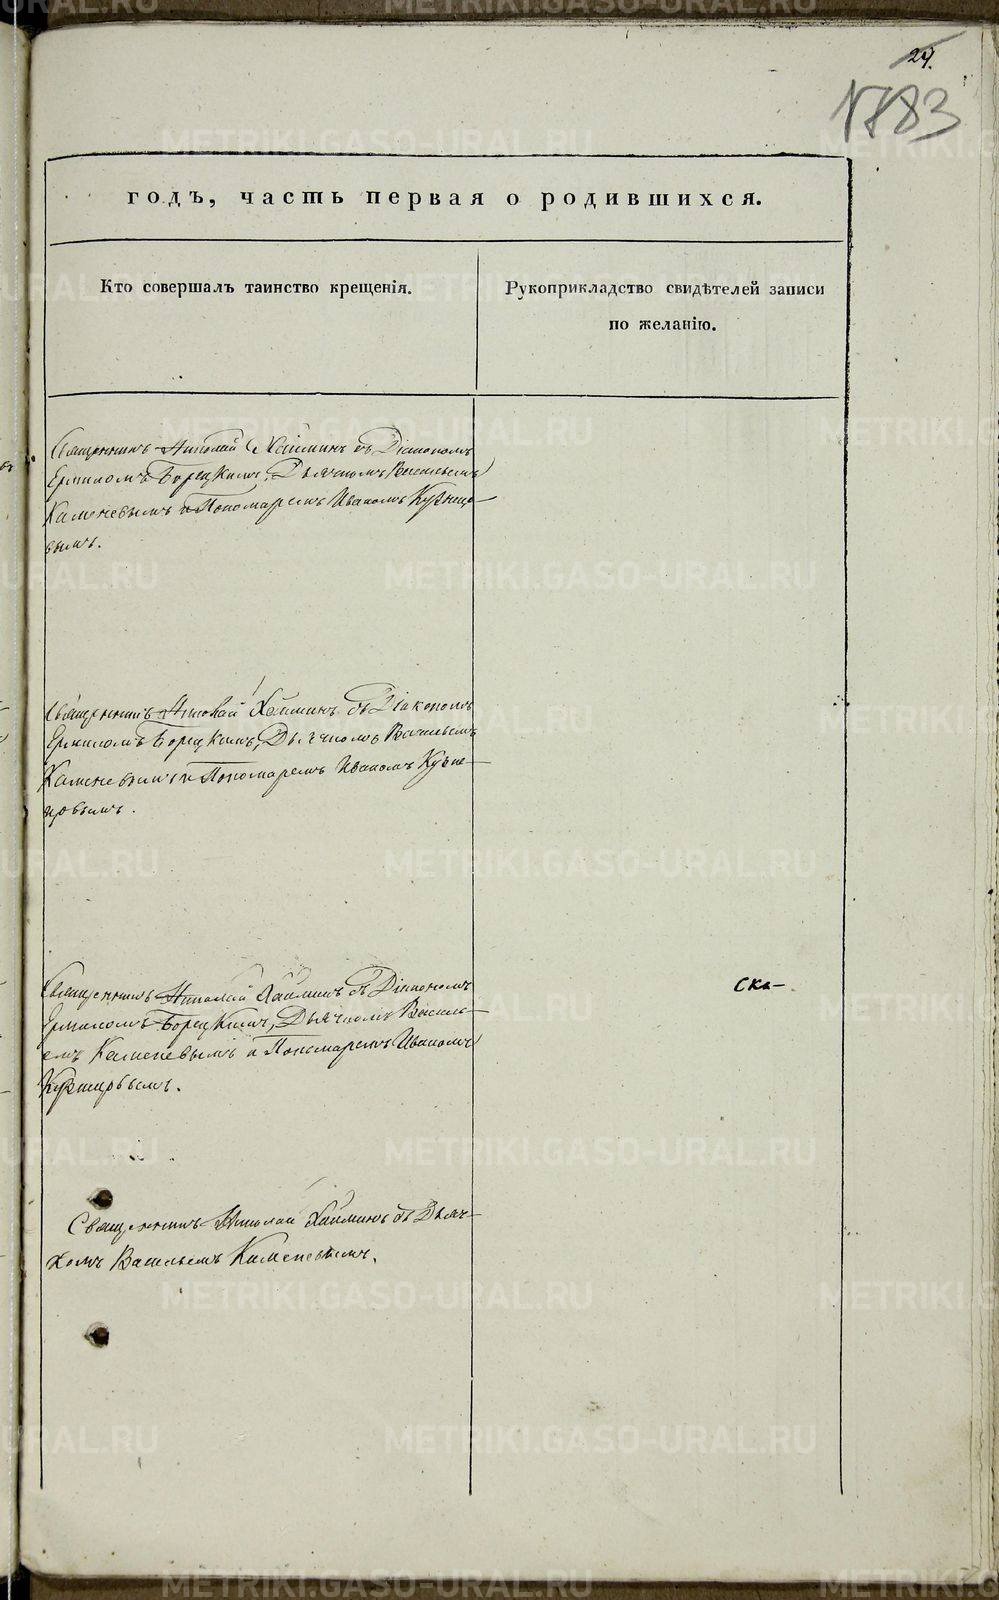 24.
1783
годъ, часть первая о родившихся.
Кто совершалъ таинство крещенія.
Рукоприкладство свидѣтелей записи
по желанію.
Священникъ Николай Хайминъ съ Діакономъ
Ермиломъ Борецкимъ, Дьячкомъ Васильемъ
Каменевымъ и Пономаремъ Иваномъ Кузнецо-
вымъ.
Священникъ Николай Хайминъ съ Діакономъ
Ермиломъ Борецкимъ, Дьячкомъ Васильемъ
Каменевымъ и Пономаремъ Иваномъ Кузне-
цовымъ.
Священникъ Николай Хайминъ съ Діакономъ
Ермиломъ Борецкимъ, Дьячкомъ Василь-
емъ Каменевымъ и Пономаремъ Иваномъ
Кузнецовымъ.
Ска-
Священникъ Николай Хайминъ съ Дьяч-
комъ Васильемъ Каменевымъ.
METRIKI.GASO-URAL.RU